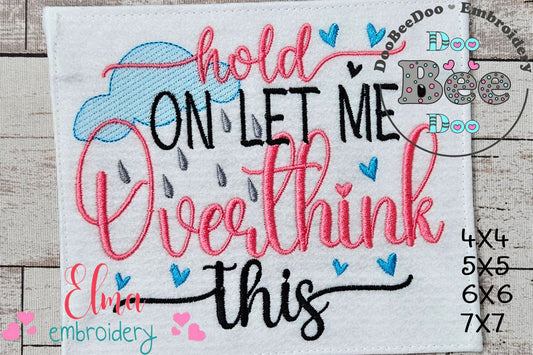 DooBeeDoo • Embroidery
Doo
Bee
Doo
hold
ON LET ME
Overthink
this
4X4
5X5
6X6
7X7
Elma
embroidery